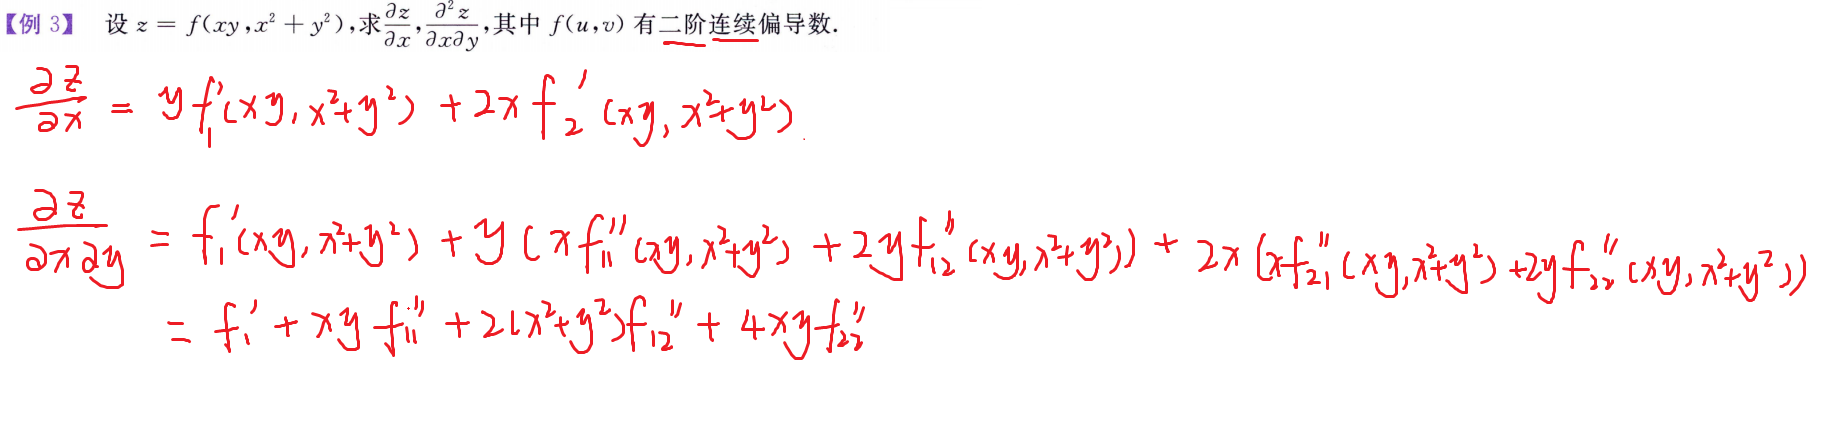 【例 3】 设 z = f(xy,x²+y²),求∂z/∂x,∂²z/∂x∂y,其中 f(u,v) 有二阶连续偏导数.
∂z/∂x = y f₁′(xy, x²+y²) + 2x f₂′(xy, x²+y²)
∂z/∂x∂y = f₁′(xy, x²+y²) + y(x f₁₁″(xy, x²+y²) + 2y f₁₂″(xy, x²+y²)) + 2x(x f₂₁″(xy, x²+y²) + 2y f₂₂″(xy, x²+y²))
= f₁′ + xy f₁₁″ + 2(x²+y²) f₁₂″ + 4xy f₂₂″